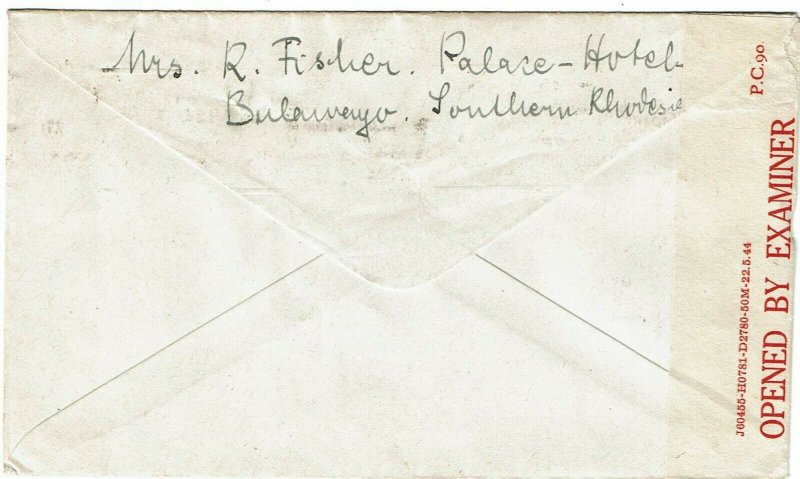 Mrs. R. Fisher. Palace-Hotel.
Bulawayo. Southern Rhodesia
P.C.90.
OPENED BY EXAMINER
J60455-H0781-D2780-50M-22.5.44